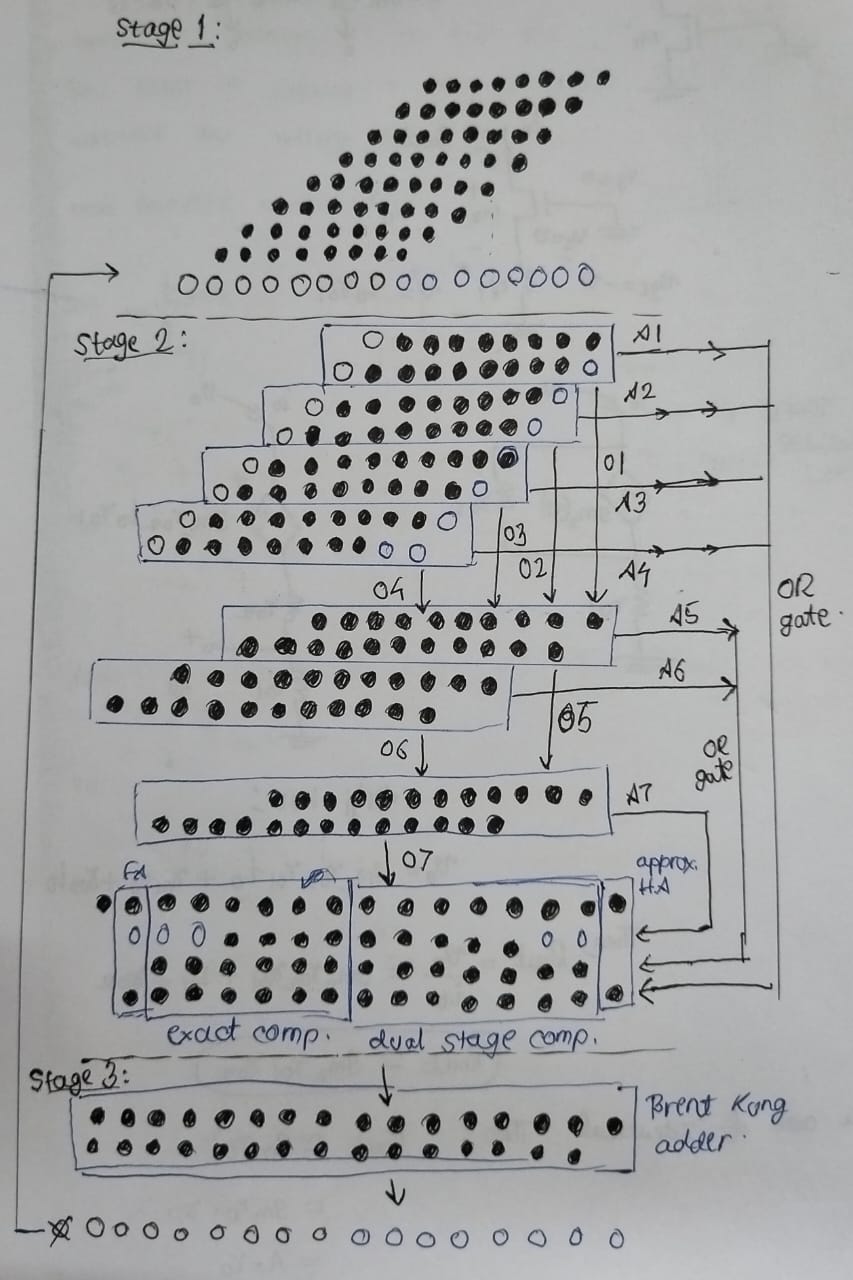 Stage 1:
Stage 2:
A1
A2
O1
A3
O3
O2
A4
O4
OR
gate.
A5
A6
O5
O6
OR
gate
A7
O7
FA
HA
approx.
HA
exact comp.
dual stage comp.
Stage 3:
Brent Kung
adder.